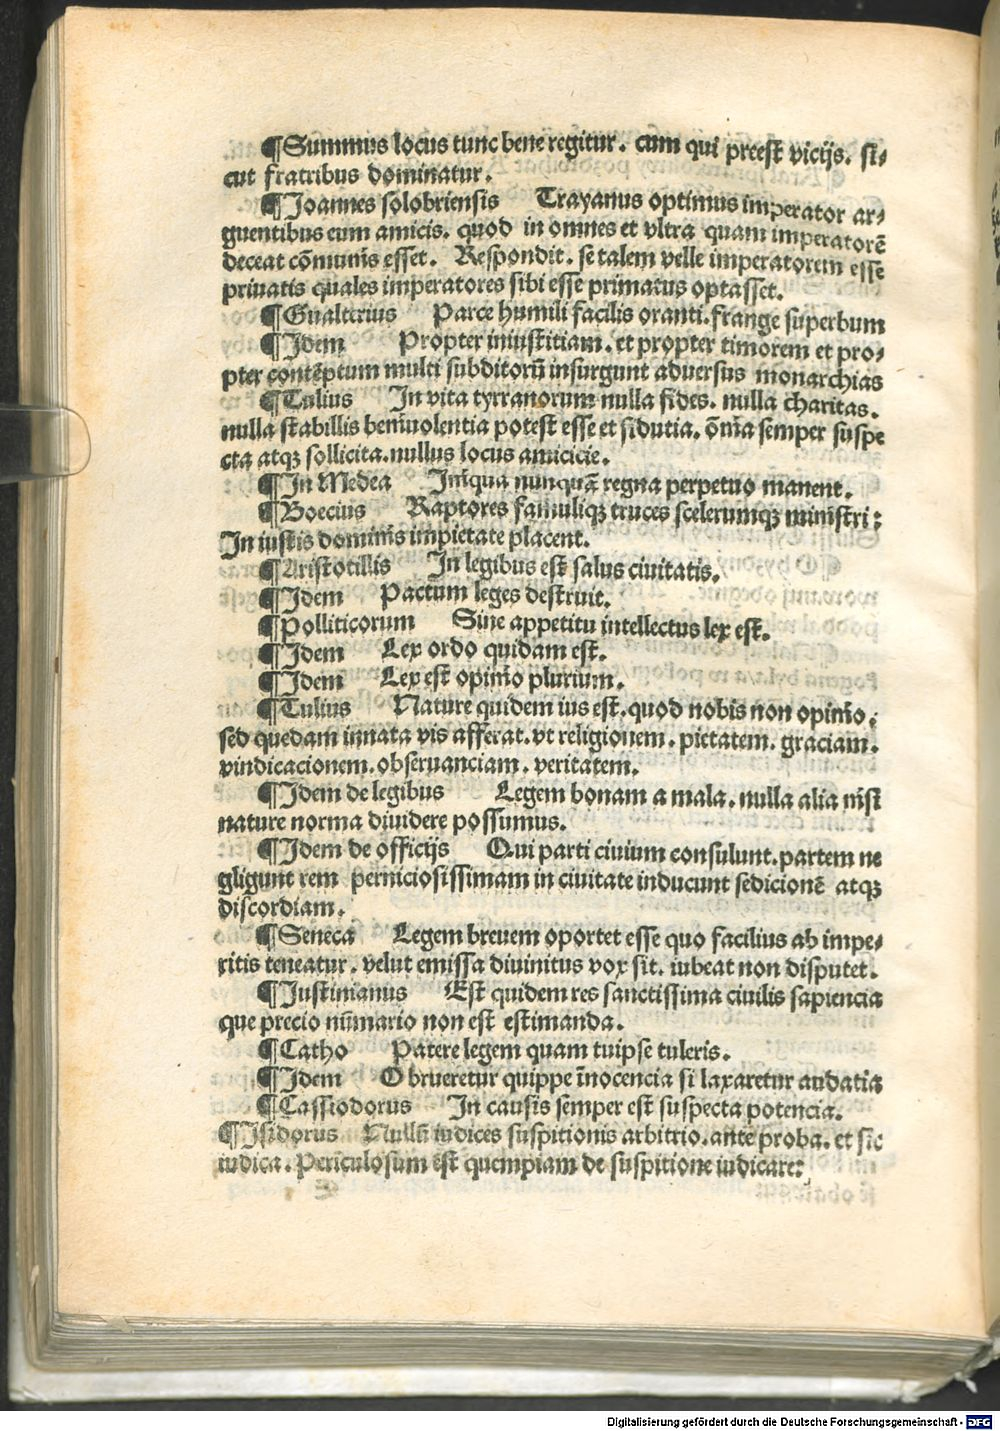 ¶Summus locus tunc bene regitur. cum qui preest vicijs. si⸗
cut fratribus dominatur.
¶Joannes solobriensis Trayanus optimus imperator ar⸗
guentibus eum amicis. quod in omnes et vltra quam imperatorē
deceat cōmunis esset. Respondit. se talem velle imperatorem esse
priuatis quales imperatores sibi esse primatus optasset.
¶Gualterius Parce humili facilis oranti. frange superbum
¶Idem Propter iniustitiam. et propter timorem et pro⸗
pter contēptum multi subditorū insurgunt aduersus monarchias
¶Tulius In vita tyrranorum nulla fides. nulla charitas.
nulla stabillis beniuolentia potest esse et fidutia. ōnia semper suspe
cta atqꝫ sollicita. nullus locus amicicie.
¶In Medea Iniqua nunquā regna perpetuo manent.
¶Boecius Raptores famuliqꝫ truces scelerumqꝫ ministri:
In iustis dominis impietate placent.
¶Aristotillis In legibus est salus ciuitatis.
¶Idem Pactum leges destruit.
¶Polliticorum Sine appetitu intellectus lex est.
¶Idem Lex ordo quidam est.
¶Idem Lex est opinio plurium.
¶Tulius Nature quidem ius est. quod nobis non opinio.
sed quedam innata vis afferat. vt religionem. pietatem. graciam.
vindicacionem. obseruanciam. veritatem.
¶Idem de legibus Legem bonam a mala. nulla alia nisi
nature norma diuidere possumus.
¶Idem de officijs Qui parti ciuium consulunt. partem ne
gligunt rem perniciosissimam in ciuitate inducunt sedicionē atqꝫ
discordiam.
¶Seneca Legem breuem oportet esse quo facilius ab impe⸗
ritis teneatur. velut emissa diuinitus vox sit. iubeat non disputet.
¶Justinianus Est quidem res sanctissima ciuilis sapiencia
que precio nūmario non est estimanda.
¶Catho Patere legem quam tuipse tuleris.
¶Idem Obrueretur quippe īnocencia si laxaretur audatia
¶Cassiodorus In causis semper est suspecta potencia.
¶Isidorus Nullū iudices suspitionis arbitrio. ante proba. et sic
iudica. Periculosum est quempiam de suspitione iudicare:
Digitalisierung gefördert durch die Deutsche Forschungsgemeinschaft - DFG